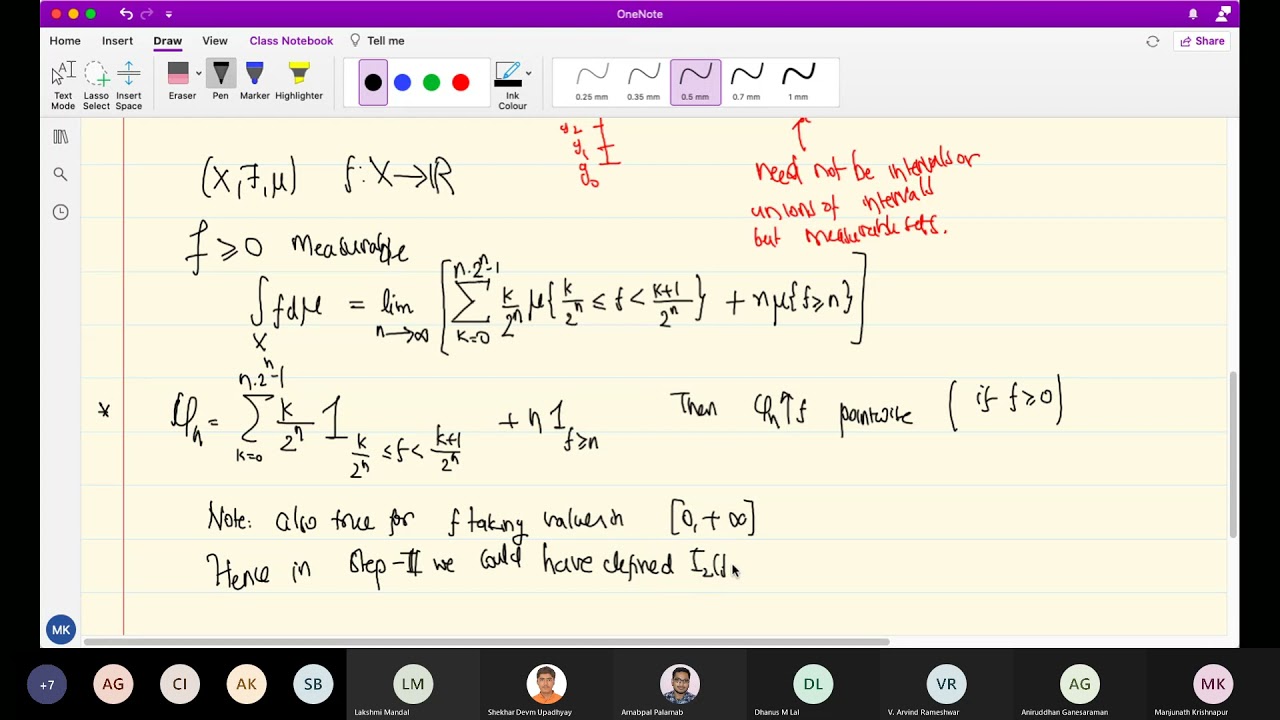 OneNote
Home Insert Draw View Class Notebook Tell me
Share
Text Mode
Lasso Select
Insert Space
Eraser
Pen
Marker
Highlighter
Ink Colour
0.25 mm 0.35 mm 0.5 mm 0.7 mm 1 mm
y₂
y₁
y₀
need not be intervals or
unions of intervals
but measurable sets.
(X, F, μ) f: X → ℝ
f ≥ 0 measurable
∫_X f dμ = lim_{n→∞} [ ∑_{k=0}^{n·2^n-1} k/2^n μ{k/2^n ≤ f < (k+1)/2^n} + n μ{f ≥ n} ]
* φ_n = ∑_{k=0}^{n·2^n-1} k/2^n 1_{k/2^n ≤ f < (k+1)/2^n} + n 1_{f ≥ n} Then φ_n ↑ f pointwise (if f ≥ 0)
Note: also true for f taking values in [0, +∞]
Hence in Step-II we could have defined I₂(
MK
+7 AG CI AK SB LM DL VR AG MK
Lakshmi Mandal Shekhar Devm Upadhyay Arnabpal Palarnab Dhanus M Lal V. Arvind Rameshwar Aniruddhan Ganesaraman Manjunath Krishnapur